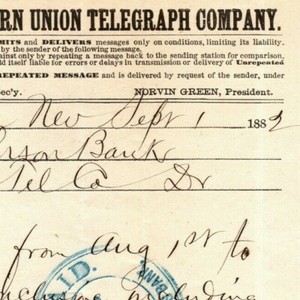 RN UNION TELEGRAPH COMPANY.
MITS and DELIVERS messages only on conditions, limiting its liability,
by the sender of the following message.
against only by repeating a message back to the sending station for comparison,
ld itself liable for errors or delays in transmission or delivery of Unrepeated
REPEATED MESSAGE and is delivered by request of the sender, under
ec'y. NORVIN GREEN, President.
New Sept 1 1882
Banks
Tel Co Dr
from Aug 1st to
AID.
BANK
including